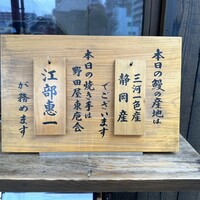 本日の鰻の産地は
三河一色産
静岡産
でございます
本日の焼き手は
野田屋東庖会
江部恵一
が務めます